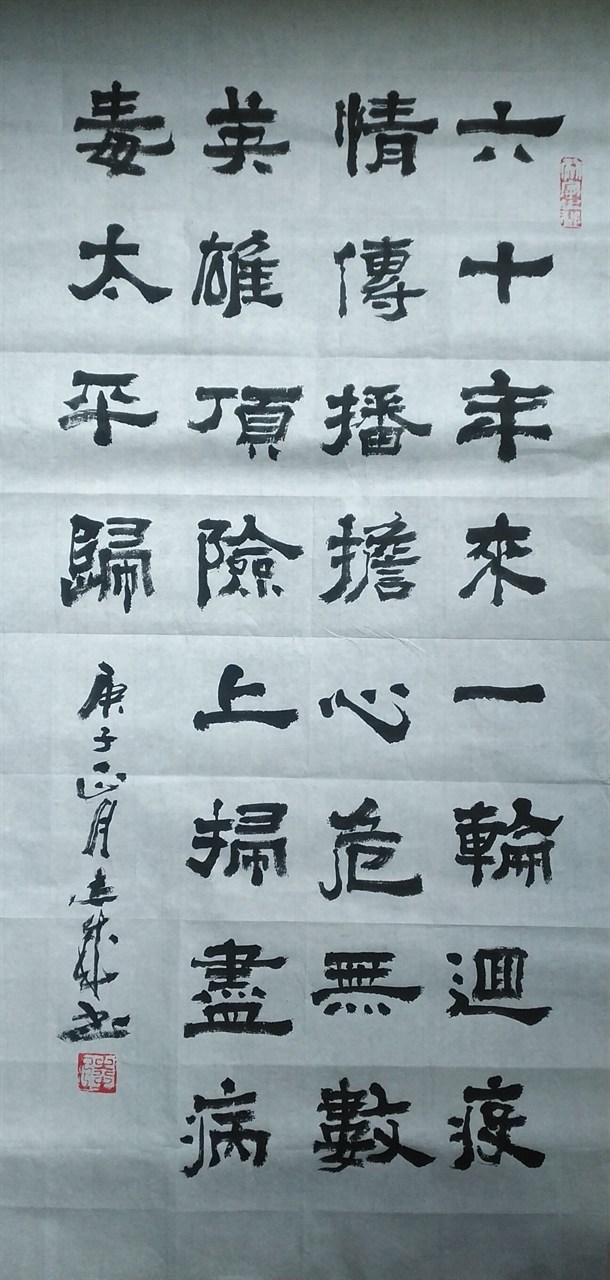 六十年來一輪迴疫
情傳播擔心危無數
英雄頂險上掃盡病
毒太平歸
庚子正月
書